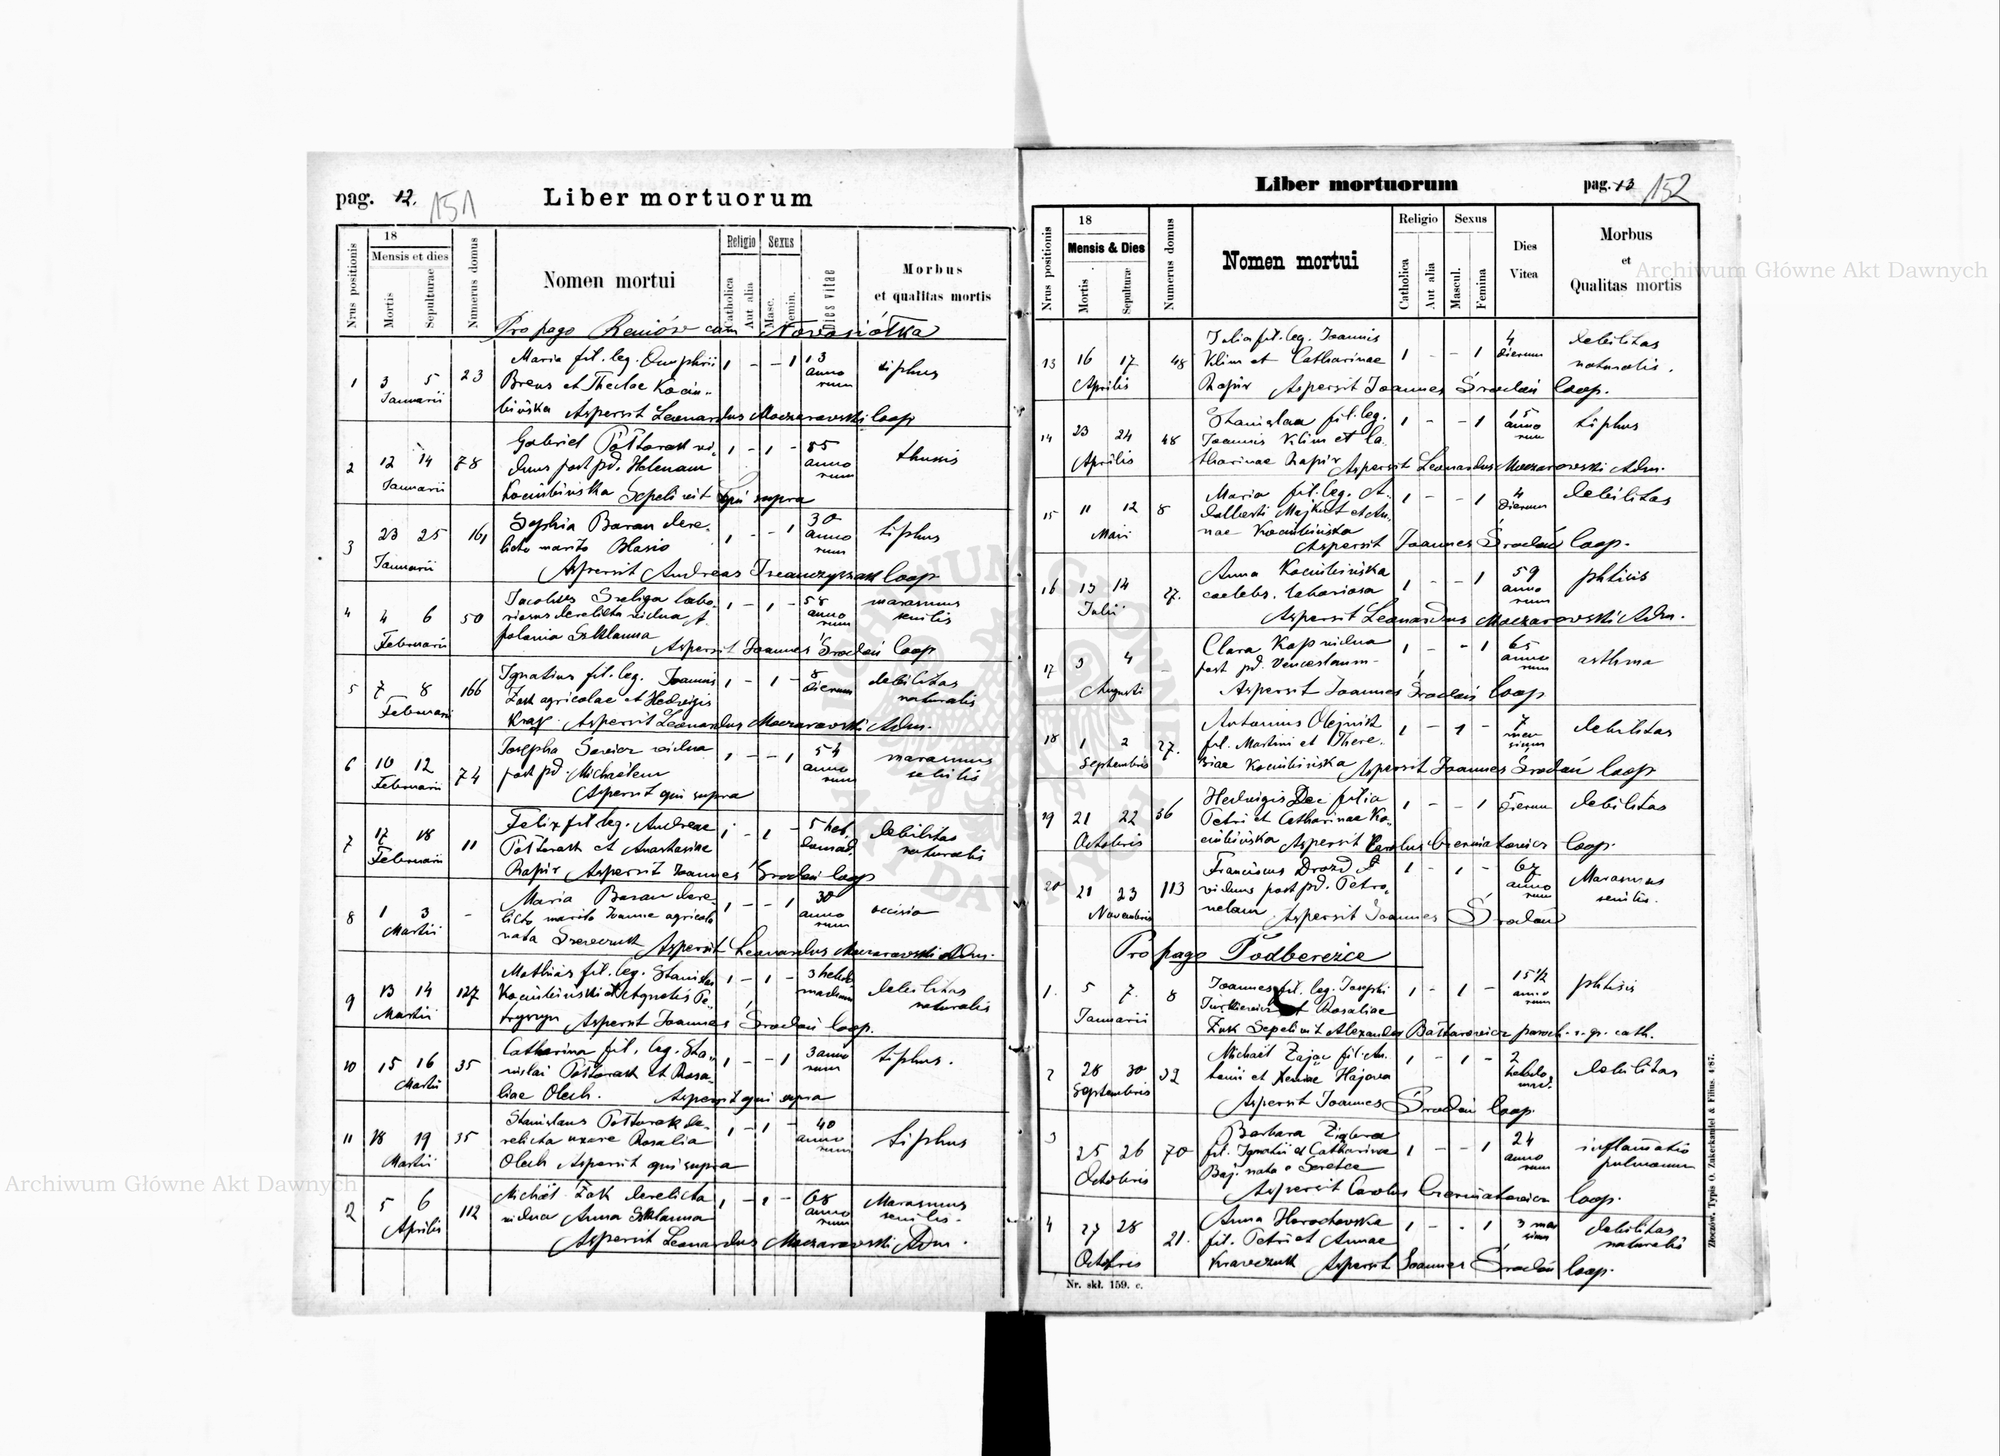 pag. 12.
151
Liber mortuorum
Nrus positionis
18
Mensis et dies
Mortis
Sepulturae
Numerus domus
Nomen mortui
Religio
Catholica
Aut alia
Sexus
Masc.
Femin.
Dies vitae
Morbus
et qualitas mortis
Pro pago Reniów cum Nowosiółka
1 3 5 23 Maria fil. leg. Onuphrii 1 - - 1 13 tiphus
Januarii Breus et Theclae Kocim- annorum
bińska Aspersit Leonardus Moczarowski coop
2 12 14 78 Gabriel Półtorak vi- 1 - 1 - 55 thusis
Januarii duus post pd. Helenam annorum
Kocimbińska Sepelivit qui supra
3 23 25 161 Sophia Baran dere- 1 - - 1 30 tiphus
Januarii licto marito Blasio annorum
Aspersit Andreas coop
4 4 6 50 Jacobus labo- 1 - 1 - 58 marasmus
Februarii riosus derelicta vidua A- annorum senilis
polonia Szklanna
Aspersit Joannes Środoń coop
5 7 8 166 Ignatius fil. leg. Joannis 1 - 1 - 8 debilitas
Februarii Żak agricolae et Hedvigis dierum naturalis
Aspersit Leonardus Moczarowski Adm.
6 10 12 74 Josepha vidua 1 - - 1 54 marasmus
Februarii post pd. Michaelem annorum senilis
Aspersit qui supra
7 17 18 11 Felix fil. leg. Andreae 1 - 1 - 5 heb- debilitas
Februarii Półtorak et Anastasiae domad. naturalis
Rapir Aspersit Joannes Środoń coop
8 1 3 - Maria Baran dere- 1 - - 1 30 occisio
Martii licto marito Joanne agricola annorum
nata Szewczuk Aspersit Leonardus Moczarowski Adm.
9 13 14 127 Mathias fil. leg. Stanislai 1 - 1 - 3 hebdo- debilitas
Martii Kocimbiński et Agnetis Pe- madum naturalis
tryszyn Aspersit Joannes Środoń coop.
10 15 16 35 Catharina fil. leg. Sta- 1 - - 1 3 anno- tiphus.
Martii nislai Półtorak et Rosa- rum
liae Olech. Aspersit qui supra
11 18 19 35 Stanislaus Półtorak de- 1 - 1 - 40 tiphus
Martii relicta uxore Rosalia annorum
Olech Aspersit qui supra
12 5 6 112 Michael Żak derelicta 1 - 1 - 68 Marasmus
Aprilis vidua Anna Szklanna annorum senilis.
Aspersit Leonardus Moczarowski Adm.
Liber mortuorum
pag. 13
152
Nrus positionis
18
Mensis & Dies
Mortis
Sepulturæ
Numerus domus
Nomen mortui
Religio
Catholica
Aut alia
Sexus
Mascul.
Femina
Dies
Vitea
Morbus
et
Qualitas mortis
13 16 17 48 Julia fil. leg. Joannis 1 - - 1 4 debilitas
Aprilis Klim et Catharinae dierum naturalis.
Rapir Aspersit Joannes Środoń coop.
14 23 24 48 Stanislaa fil. leg. 1 - - 1 15 tiphus
Aprilis Joannis Klim et Ca- annorum
tharinae Rapir Aspersit Leonardus Moczarowski Adm.
15 11 12 8 Maria fil. leg. A- 1 - - 1 4 debilitas
Maii dalberti Majkut et An- dierum
nae Kocimbińska
Aspersit Joannes Środoń coop.
16 13 14 27. Anna Kocimbińska 1 - - 1 59 phtisis
Julii caelebs. laboriosa annorum
Aspersit Leonardus Moczarowski Adm.
17 3 4 - Clara Kap vidua 1 - - 1 65 asthma
Augusti post pd. Venceslaum annorum
Aspersit Joannes Środoń coop
18 1 2 27. Antonius Olejnik 1 - 1 - 7 debilitas
Septembris fil. Martini et There- mensium
siae Kocimbińska Aspersit Joannes Środoń coop
19 21 22 36 Hedwigis Dec filia 1 - - 1 5 dierum debilitas
Octobris Petri et Catharinae Ko-
cimbińska Aspersit Carolus coop.
20 21 23 113 Franciscus Drozd 1 - 1 - 67 Marasmus
Novembris viduus post pd. Petro- annorum senilis.
nelam Aspersit Joannes Środoń
Pro pago Podberezce
1. 5 7. 8 Joannes fil. leg. Josephi 1 - 1 - 15 1/2 phtisis
Januarii et Rosaliae annorum
Żuk Sepelivit Alexander paroch. r. gr. cath.
2 28 30 32 Michael Zając fil. An- 1 - 1 - 2 debilitas
Septembris tonii et Xeniae hebdomad.
Aspersit Joannes Środoń coop.
3 25 26 70 Barbara 1 - - 1 24 inflamatio
Octobris fil. Ignatii et Catharina annorum pulmonum
Aspersit Carolus coop.
4 27 28 21. Anna Horochowska 1 - - 1 3 men- debilitas
Octobris fil. Petri et Annae sium naturalis
Krawczuk Aspersit Joannes Środoń coop.
Nr. skł. 159. c.
Złoczów. Typis O. Zukerkandel & Filius. 4/87.
Archiwum Główne Akt Dawnych
Archiwum Główne Akt Dawnych
ARCHIWUM GŁÓWNE AKT DAWNYCH